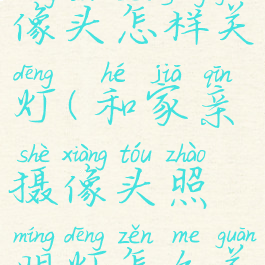 像头怎样关
dēng hé jiā qīn
灯(和家亲
shè xiàng tóu zhào
摄像头照
míng dēng zěn me guān
明灯怎么关